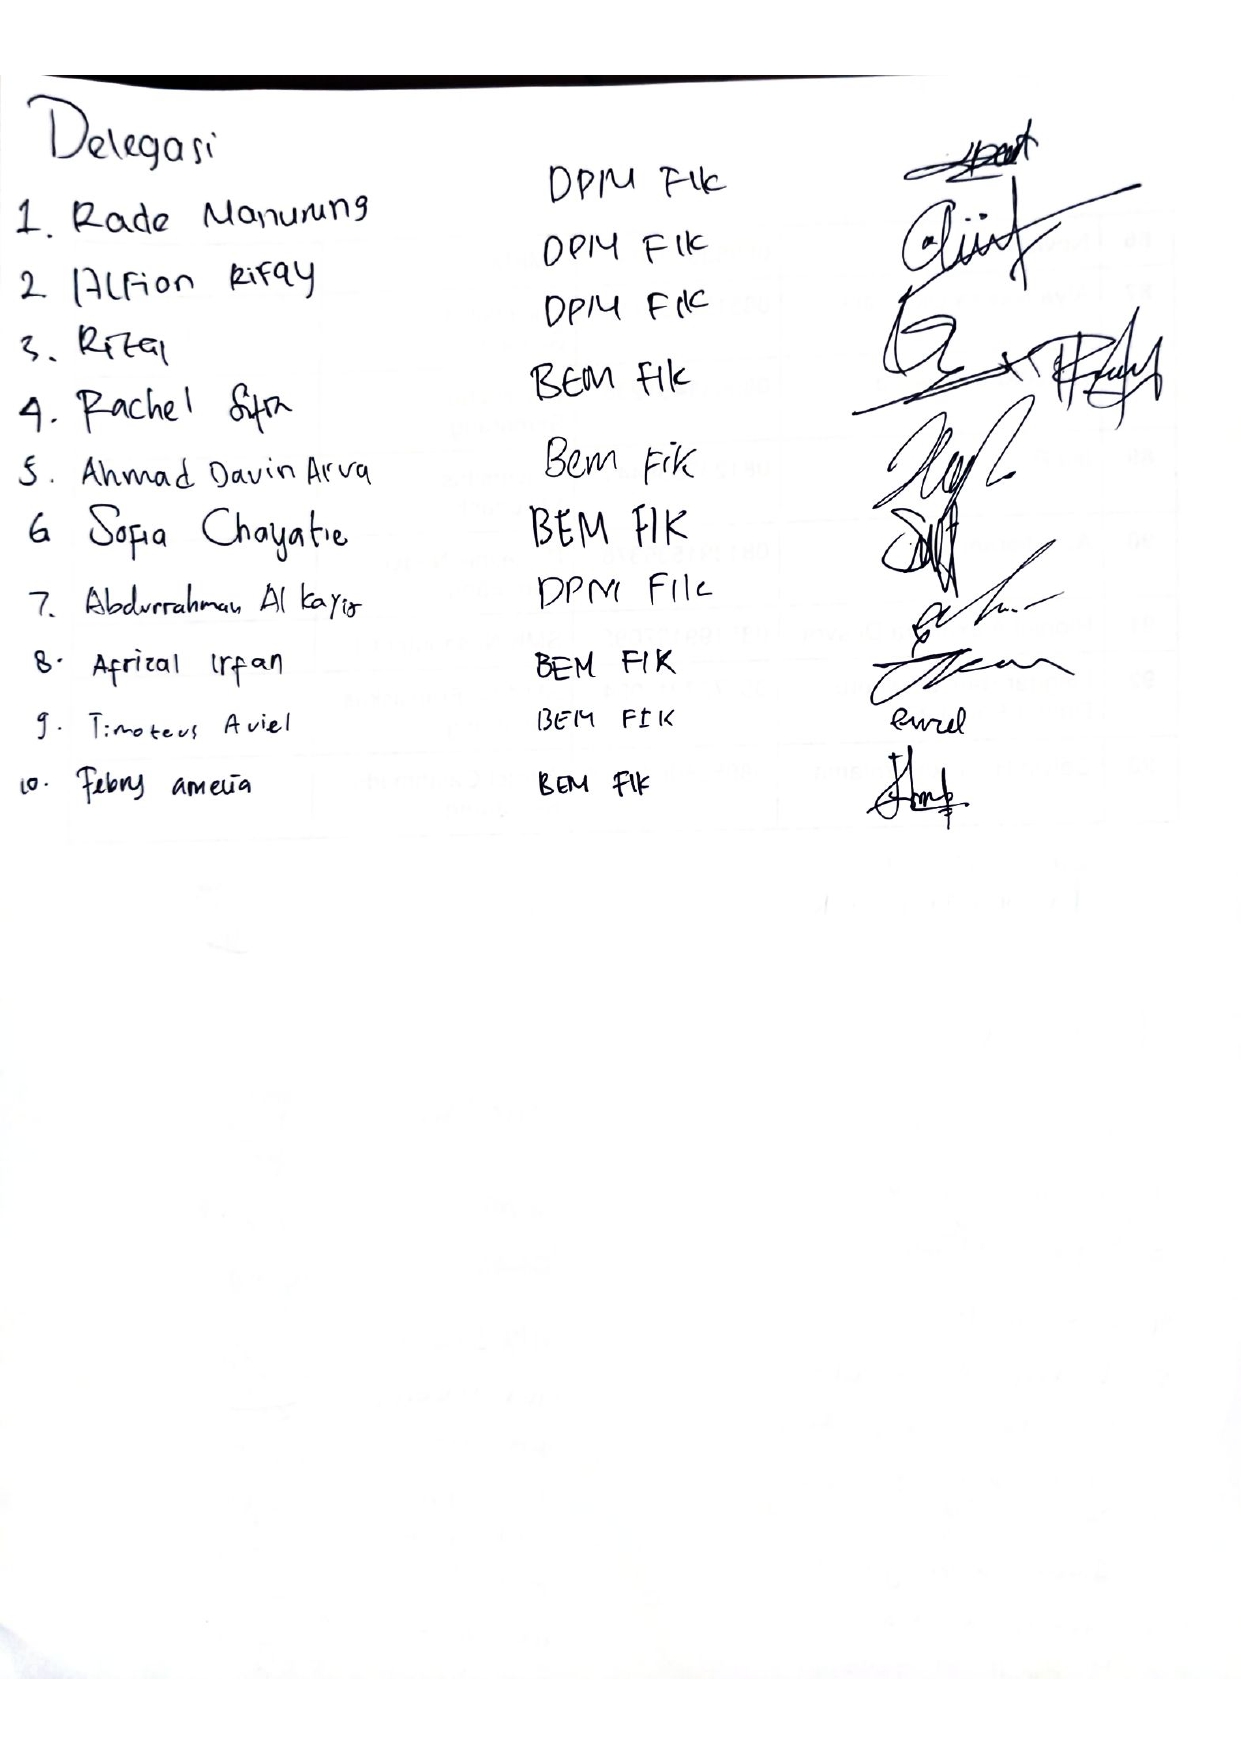 Delegasi
1. Rade Manurung DPM FIK
2 Alfion Rifqy DPM FIK
3. Rizal DPM FIK
4. Rachel Syifa BEM FIK
5. Ahmad Davin Arva Bem FiK
6 Sofia Chayatie BEM FIK
7. Abdurrahman Al Kayis DPM FIK
8. Afrizal Irfan BEM FIK
9. Timoteus Aviel BEM FIK
10. Febry amelia BEM FIK